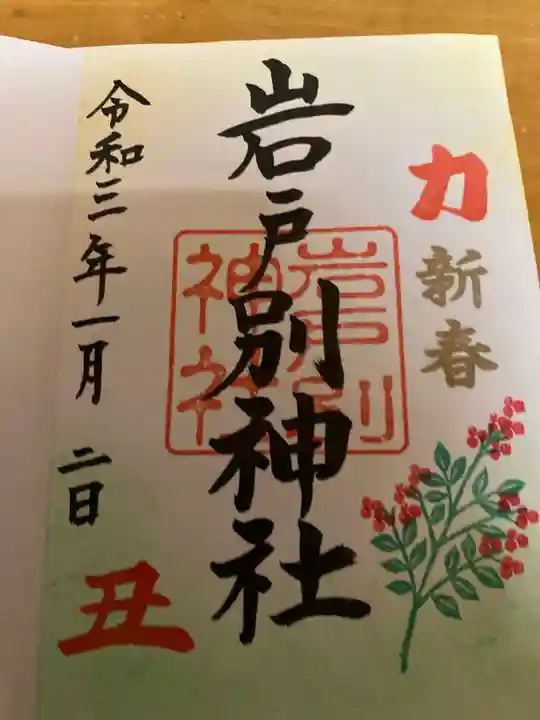 力
新春
岩戸別神社
岩戸別
神社
令和三年一月 二日
丑